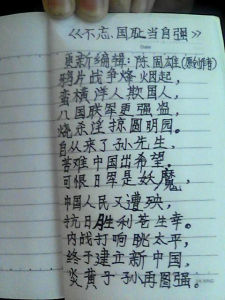 《不忘、国耻当自强》
Date
更新编辑:陈国雄(原创作者)
鸦片战争烽烟起,
蛮横洋人欺国人,
八国联军更强盗,
烧杀淫掠圆明园。
自从来了孙先生,
苦难中国出希望。
可恨日军是妖魔,
中国人民又遭殃,
抗日胜利苍生幸。
内战打响眺太平,
终于建立新中国,
炎黄子孙再图强。